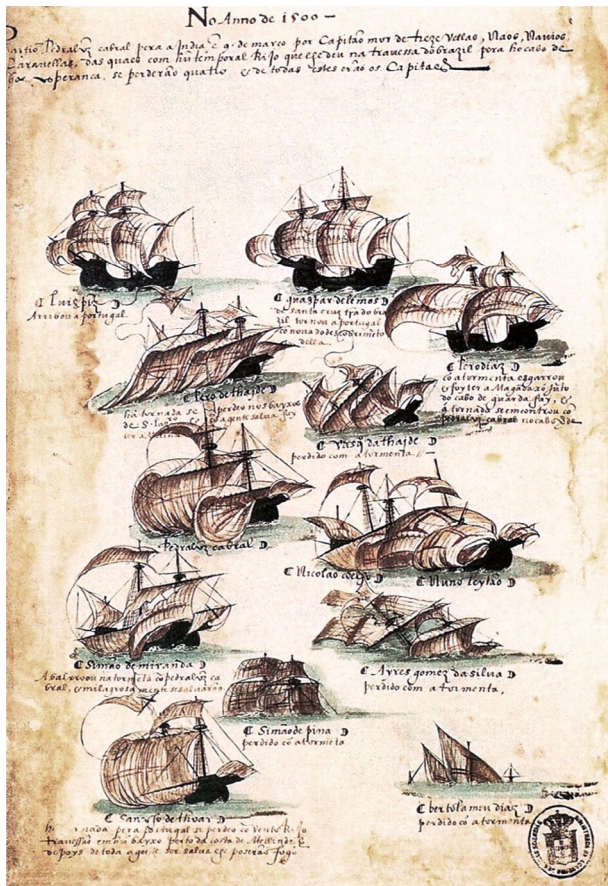 No Anno de 1500 —
Partio Pedralvz cabral pera a India é 9 de março por Capitão mor de treze vellas, Naos, Navios,
Caravellas, das quaes com hũ temporal Rijo que lhe deu na travessa do brazil pera ho cabo de
boa esperanca, se perderão quatro e de todas estes erão os Capitães
Luis piz
Arribou a portugal
guaspar de lemos
de santa cruz tra do bra
zil tornou a portugal
cõ nova do descobrimẽto
della
Pero diaz
cõ a tormenta esgarrou
e foy ter a Magadaxo jũto
do cabo de guardafuy, e
á tornada se emcontrou cõ
pedralvz cabral no cabo
Pero de thaíde
ha tornada se perdeo nos baxos
de S. lazo
a gente salva
Vasq da thaide
perdido com a tormenta
Pedralvz cabral
Nicolao coelho
Nuno leytão
Simão de miranda
Abalrroou na tormẽta cõ pedralvz ca
bral, e milagrosamente se salvarão
Ayres gomez da silva
perdido com a tormenta,
Simão de pina
perdido cõ a tormẽta
Sancho de thoar
pera portugal se perdeo cõ vento Rijo
travessão em hũ bayxo perto da costa de Melinde
depoys de toda a gẽte ser salva lhe poserão fogo
bertolameu diaz
perdido cõ a tormenta